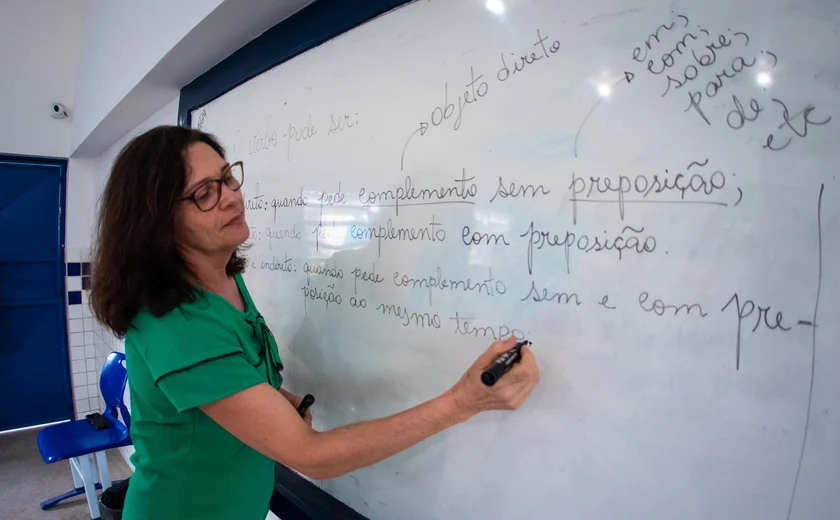 em;
com;
sobre;
para;
de
etc
objeto direto
O verbo pode ser:
quando pede complemento sem preposição;
quando pede complemento com preposição.
e indireto: quando pede complemento sem e com pre-
posição ao mesmo tempo;